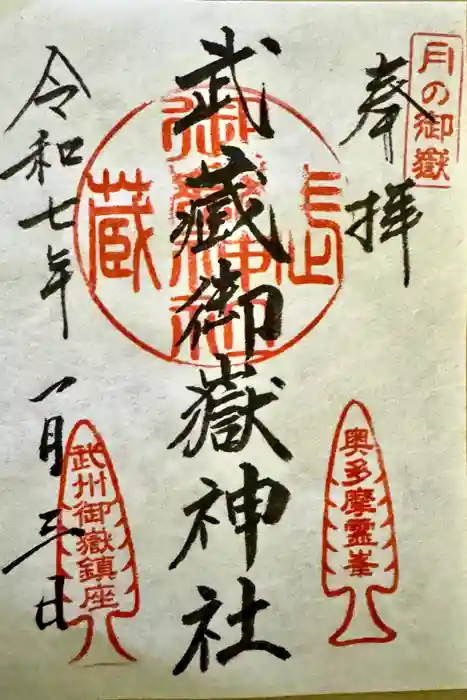 月の御嶽
奉拝
武蔵御嶽神社
令和七年 一月三日
奥多摩霊峯
武州御嶽鎮座